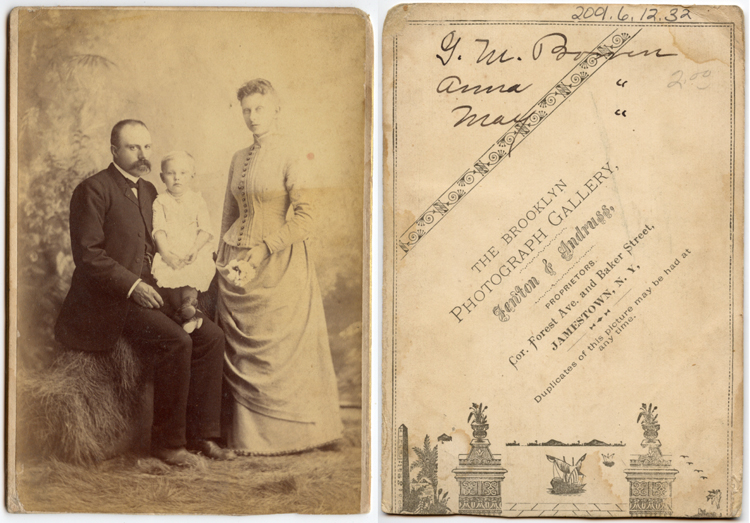 2001.6.12.32
G. M. Bowen
Anna "
May "
2.09
THE BROOKLYN
PHOTOGRAPH GALLERY,
Newton & Andruss,
PROPRIETORS.
Cor. Forest Ave. and Baker Street,
JAMESTOWN, N. Y.
Duplicates of this picture may be had at
any time.